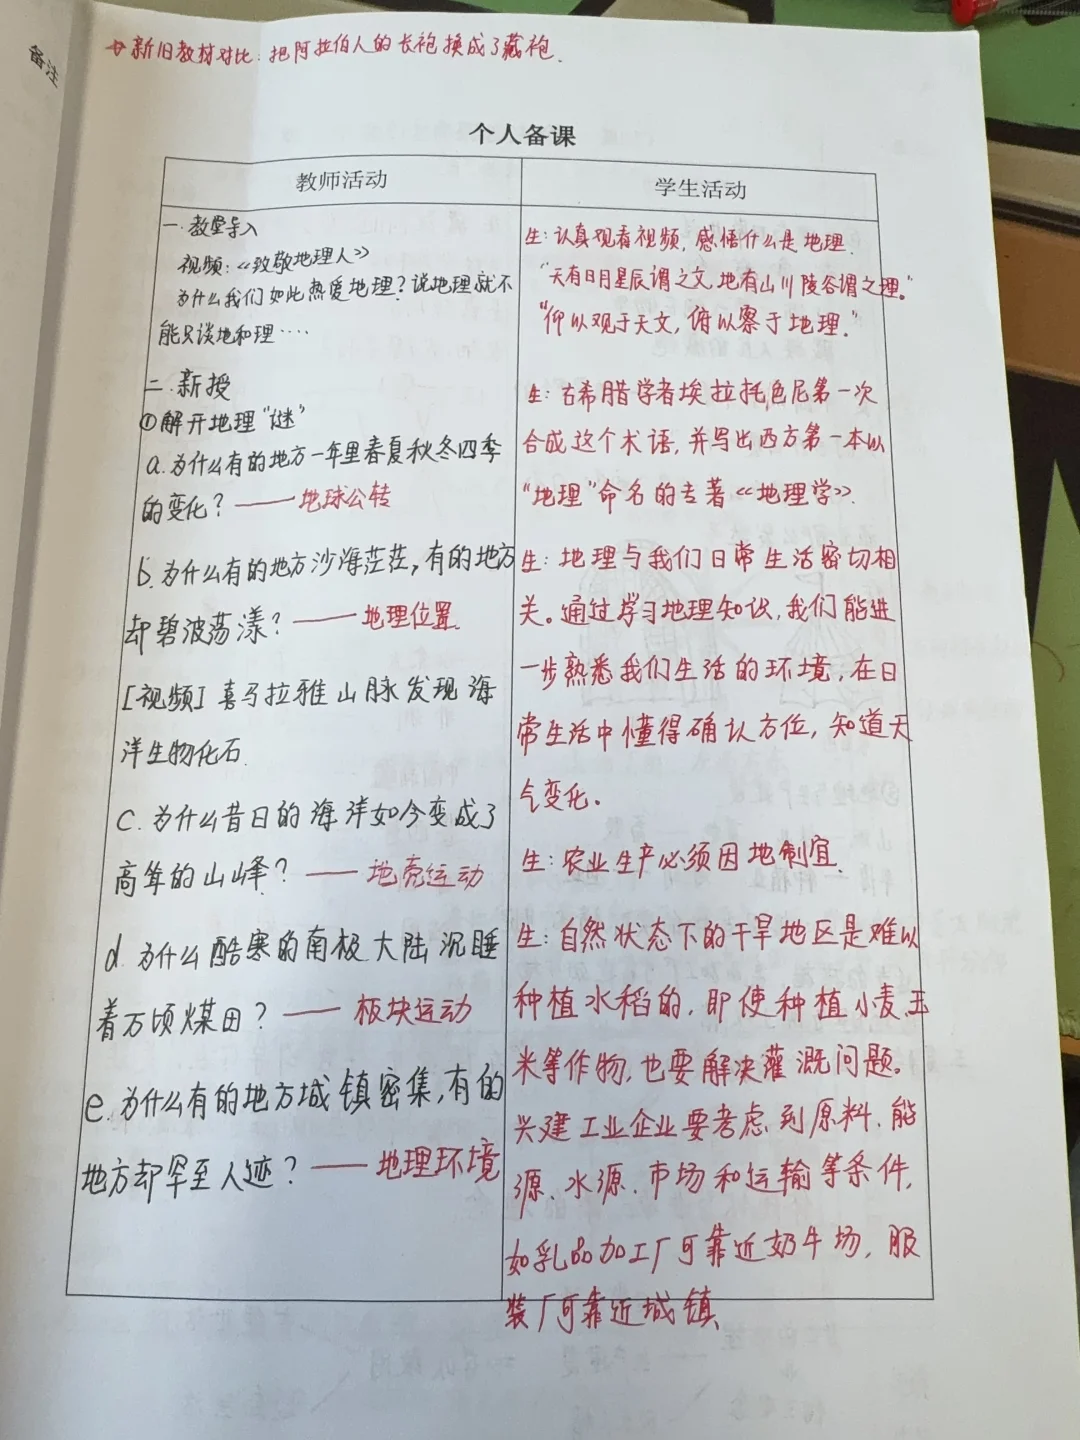 备注
新旧教材对比：把阿拉伯人的长袍换成了藏袍.
个人备课
教师活动
学生活动
一.教堂导入
视频：《致敬地理人》
为什么我们如此热爱地理？说地理就不
能只谈地和理····
二.新授
①解开地理“谜”
a.为什么有的地方一年里春夏秋冬四季
的变化？——地球公转
b.为什么有的地方沙海茫茫，有的地方
却碧波荡漾？——地理位置.
[视频]喜马拉雅山脉发现海
洋生物化石.
c.为什么昔日的海洋如今变成了
高耸的山峰？——地壳运动
d.为什么酷寒的南极大陆沉睡
着万顷煤田？——板块运动
e.为什么有的地方城镇密集，有的
地方却罕至人迹？——地理环境
生：认真观看视频，感悟什么是地理.
“天有日月星辰谓之文，地有山川陵谷谓之理。”
“仰以观于天文，俯以察于地理.”
生：古希腊学者埃拉托色尼第一次
合成这个术语，并写出西方第一本以
“地理”命名的专著《地理学》.
生：地理与我们日常生活密切相
关。通过学习地理知识，我们能进
一步熟悉我们生活的环境，在日
常生活中懂得确认方位，知道天
气变化。
生：农业生产必须因地制宜.
生：自然状态下的干旱地区是难以
种植水稻的，即使种植小麦、玉
米等作物，也要解决灌溉问题。
兴建工业企业要考虑到原料、能
源、水源、市场和运输等条件，
如乳品加工厂可靠近奶牛场，服
装厂可靠近城镇